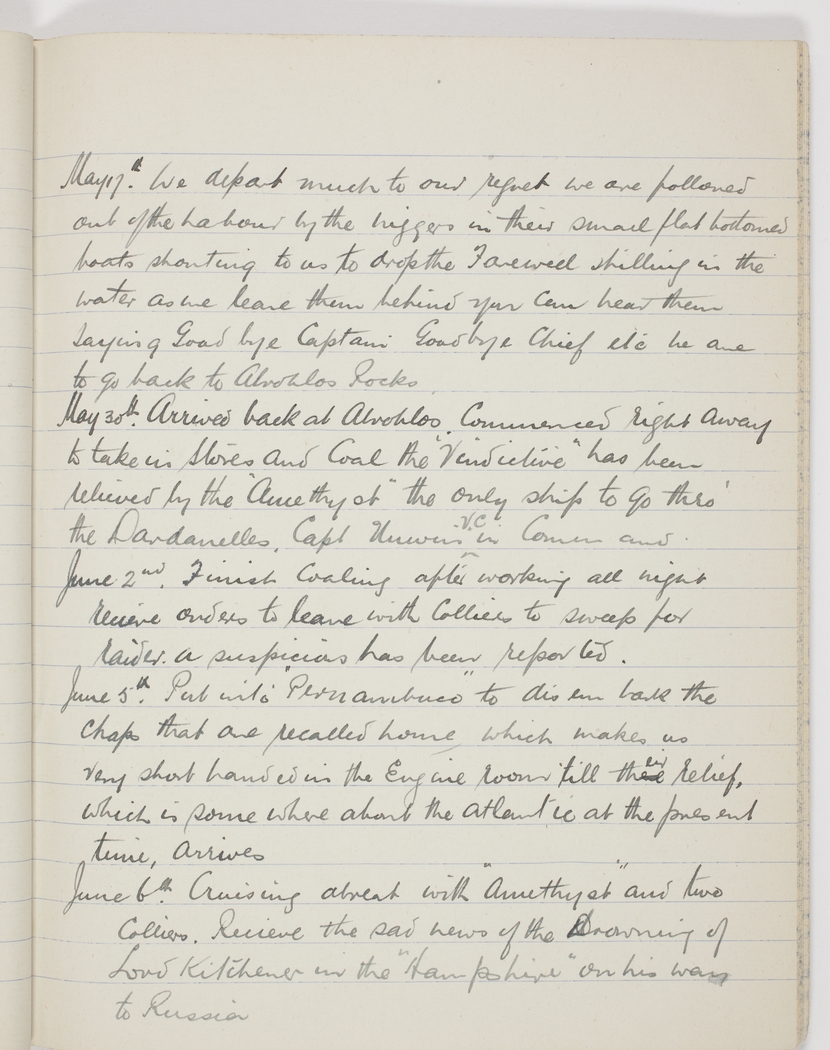 May 17th. We depart much to our regret we are followed
out of the habour by the niggers in their small flat bottomed
boats shouting to us to drop the Farewell shilling in the
water as we leave them behind you can hear them
saying Good bye Captain Goodbye Chief etc we are
to go back to Abrohlos Rocks
May 30th. Arrived back at Abrohlos. Commenced right away
to take in Stores and Coal the "Vindictive" has been
relieved by the "Amethyst" the only ship to go thro'
the Dardanelles, Capt Unwin V.C in Comm and.
June 2nd. Finish Coaling after working all night
recieve orders to leave with Colliers to sweep for
raider. a suspicious has been reported.
June 5th. Put into "Pernambuco" to disembark the
chaps that are recalled home, which makes us
very short handed in the Engine room till their relief,
which is some where about the atlantic at the present
time, arrives
June 6th. Cruising abreat with "Amethyst" and two
Colliers. Recieve the sad news of the Drowning of
Lord Kitchener in the "Hampshire" on his way
to Russia